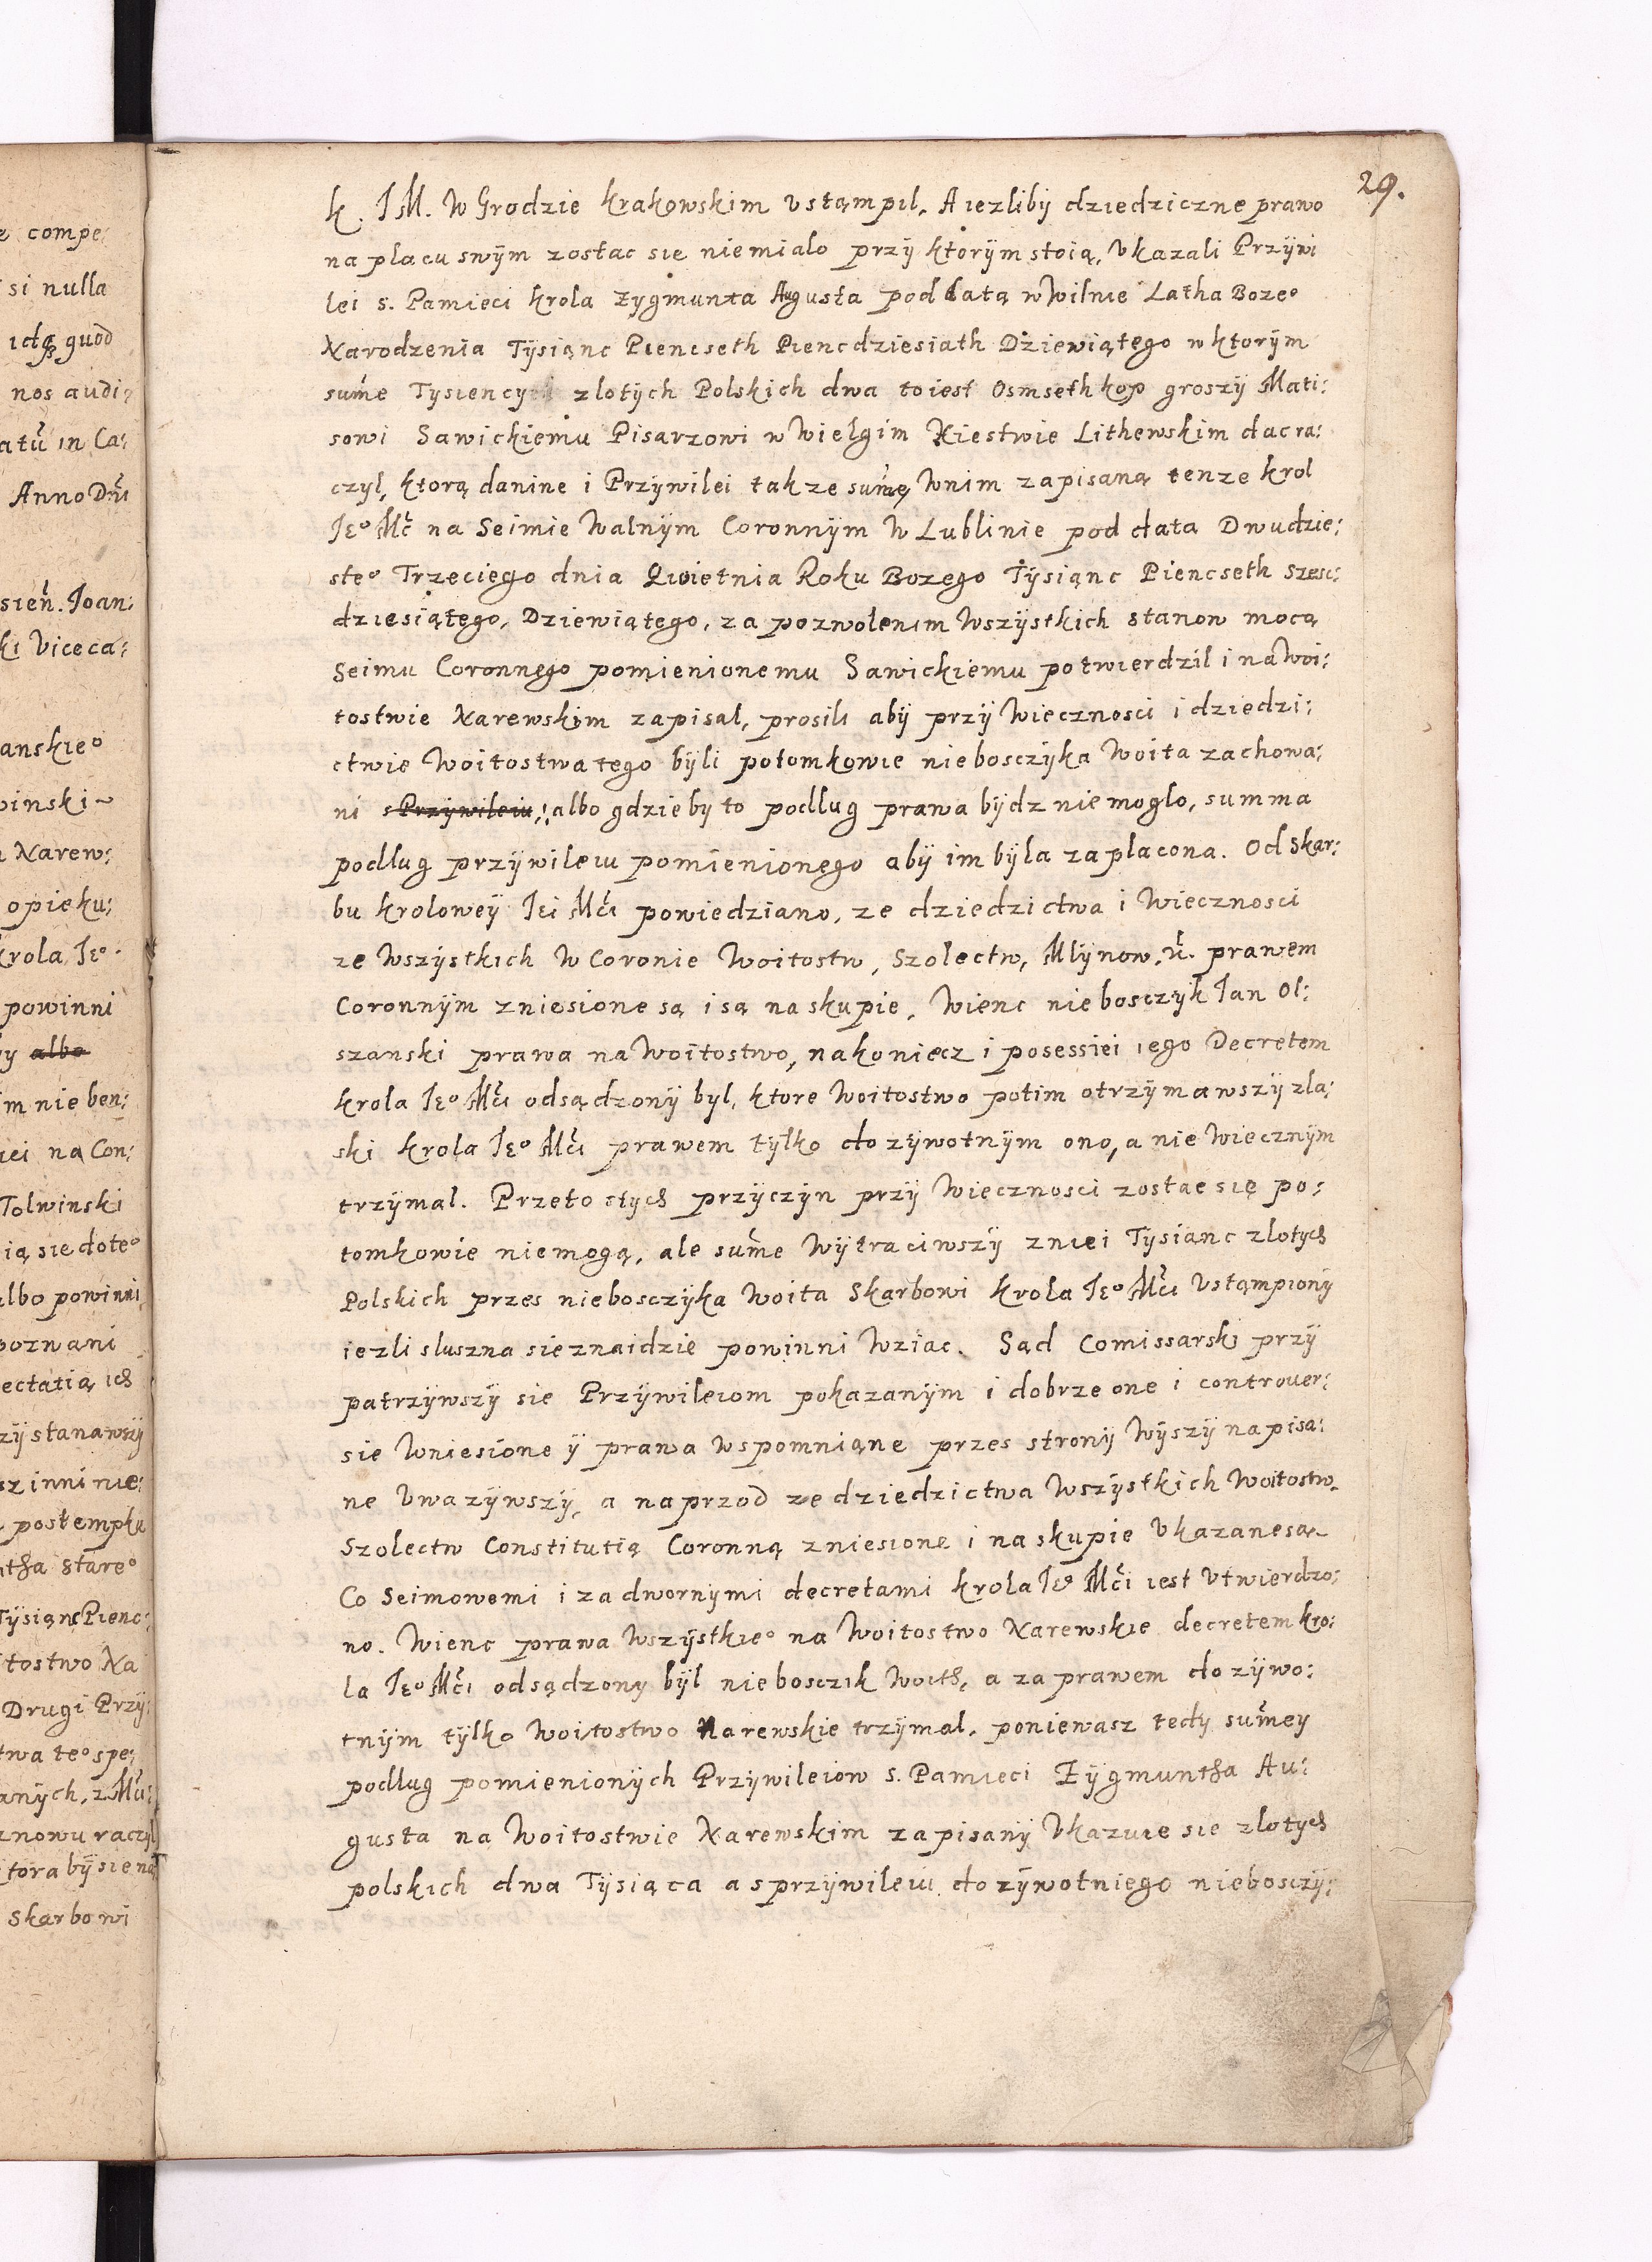 29.
K. JM. W Grodzie Krakowskim Vstąmpil, A iezliby dziedziczne prawo
na placu swÿm zostac sie niemialo przÿ ktorÿm stoią, Vkazali Przÿwi
lei s. Pamieci Krola Zygmunta Augusta pod datą w Wilnie Latha Boze°
Narodzenia Tÿsiąnc Piencseth Piencdziesiath Dziewiątego w ktorÿm
sum̃e Tysiency zlotÿch Polskich dwa toiest Osmseth kop groszÿ Mati:
sowi Sawickiemu Pisarzowi w Wielgim Xiestwie Lithewskim dac ra:
czyl, ktorą danine i Przÿwilei takze sum̃ę Wnim zapisaną tenze krol
Je° Mc̃ na Seimie Walnÿm Coronnÿm W Lublinie pod data Dwudzie:
ste° Trzeciego dnia Qwietnia Roku Bozego Tÿsiąnc Piencseth Szesc:
dziesiątego, Dziewiątego, za pozwolenim Wszÿstkich stanow mocą
Seimu Coronnego pomienionemu Sawickiemu potwierdzil i na Woi:
tostwie Narewskim zapisal, prosili abÿ przÿ Wiecznosci i dziedzi:
ctwie Woitostwa tego bÿli potomkowie niebosczÿka Woita zachowa:
ni s Przÿwileiu,: albo gdzieby to podlug prawa bÿdz niemoglo, summa
podlug przÿwileiu pomienionego abÿ im bÿla zaplacona. Od Skar:
bu Kroloweÿ Jei Mc̃i powiedziano, ze dziedzictwa i Wiecznosci
ze Wszÿstkich W Coronie Woitostw, Szolectw, Mlÿnow, prawem
Coronnÿm zniesione są i są na skupie, Wienc niebosczyk Jan Ol:
szanski prawa na Woitostwo, nakoniecz i posessiei iego Decretem
Krola Je° Mc̃i odsądzonÿ byl, ktore Woitostwo potim otrzÿmawszÿ zla:
ski Krola Je° Mc̃i prawem tÿlko dozÿwotnÿm ono, a nie Wiecznÿm
trzÿmal. Przeto stÿch przÿczÿn przÿ Wiecznosci zostac się po:
tomkowie niemogą, ale sum̃e Wÿtraciwszÿ zniei Tÿsianc zlotÿch
Polskich przes niebosczÿka Woita Skarbowi Krola Je° Mc̃i Vstąmpionÿ
iezli sluszna sie znaidzie powinni Wziac. Sąd Comissarski przÿ
patrzÿwszÿ sie Przÿwileiom pokazanÿm i dobrze one i controuer:
sie Wniesione ÿ prawa Wspomniąne przes stronÿ Wÿszÿ napisa:
ne Vwazÿwszÿ, a naprzod ze dziedzictwa Wszÿstkich Woitostw,
Szolectw Constitutią Coronną zniesione i na skupie Vkazane są
Co Seimowemi i zadwornymi decretami Krola Je° Mc̃i iest Vtwierdzo:
no. Wienc prawa Wszÿstkie° na Woitostwo Narewskie decretem kro:
la Je° Mc̃i odsądzony bÿl niebosczik Woith, a za prawem dozÿwo:
tnÿm tÿlko Woitostwo Narewskie trzÿmal, poniewasz tedy sum̃ey
podlug pomienionÿch Przÿwileiow s. Pamieci Zÿgmuntha Au:
gusta na Woitostwie Narewskim zapisanÿ Vkazuie sie zlotÿch
polskich dwa Tÿsiąca a s przÿwileiu dozÿwotniego niebosczÿ: